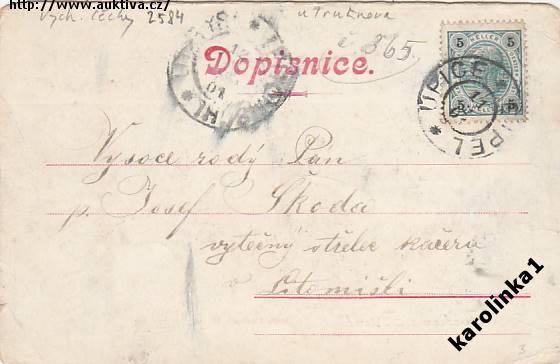 http://www.auktiva.cz/
vých. Čechy 2584
u Trutnova
č. 865.
Dopisnice.
5 HELLER 5
5 5
ÚPICE
EIPEL
01
Vysoce rodý Pan
p. Josef Škoda
výtečný střelec kačera
v Litomišli
karolinka1
3